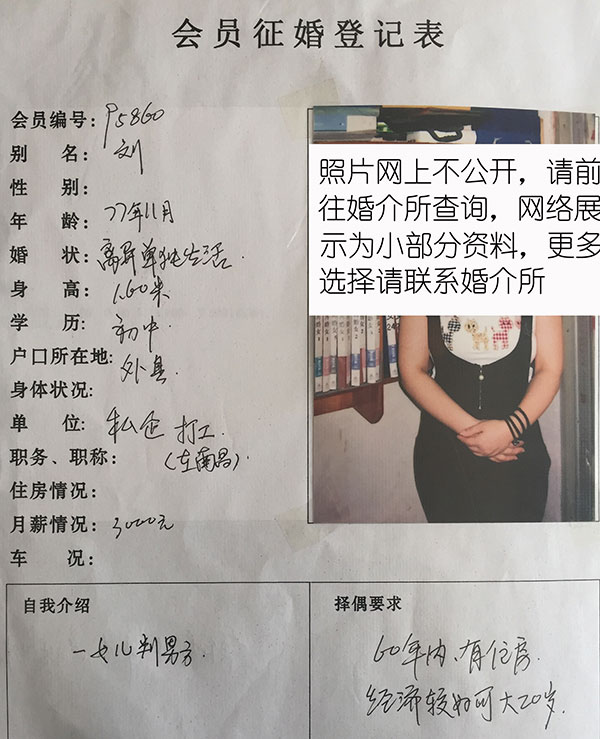 会员征婚登记表
会员编号: P5860
别 名: 刘
性 别:
年 龄: 77年11月
婚 状: 离异单独生活.
身 高: 1.60米
学 历: 初中.
户口所在地: 外县.
身体状况:
单 位: 私企 打工.
职务、职称: (在南昌).
住房情况:
月薪情况: 3000元
车 况:
照片网上不公开，请前
往婚介所查询，网络展
示为小部分资料，更多
选择请联系婚介所
自我介绍
一女儿判男方.
择偶要求
60年内、有住房.
经济较好可大20岁.